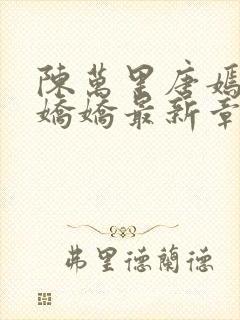 陳萬里唐嫣
嬌嬌最新章
弗里德蘭德